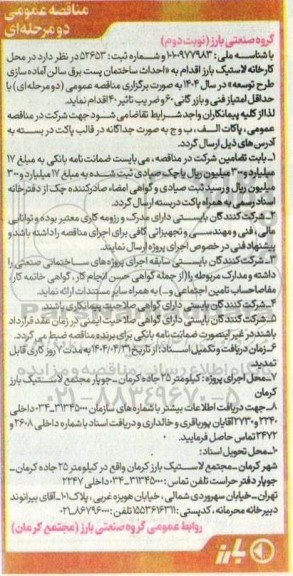 مناقصه عمومی
دو مرحله‌ای
گروه صنعتی بارز (نوبت دوم)
با شناسه ملی: ۱۰۱۰۰۹۷۷۹۸۳ و شماره ثبت: ۵۲۶۵۳ در نظر دارد در محل
کارخانه لاستیک بارز اقدام به «احداث ساختمان پست برق سالن آماده سازی
طرح توسعه» در سال ۱۴۰۴ به صورت برگزاری مناقصه عمومی (دو مرحله‌ای) با
حداقل امتیاز فنی و بازرگانی ۶۰ و ضریب تاثیر ۴۰ اقدام نماید.
لذا از کلیه پیمانکاران واجد شرایط تقاضا می شود جهت شرکت در مناقصه
عمومی، پاکات الف، ب و ج به صورت جداگانه در قالب پاکت در بسته به
آدرس های ذیل ارسال گردد.
۱- بابت تضامین شرکت در مناقصه، می بایست ضمانت نامه بانکی به مبلغ ۱۷
میلیارد و ۳۰۰ میلیون ریال یا چک صیادی ثبت شده به مبلغ ۱۷ میلیارد و ۳۰۰
میلیون ریال و رسید ثبت صیادی و گواهی امضاء صادرکننده چک از دفترخانه
اسناد رسمی به همراه پاکت دربسته ارسال گردد.
۲- شرکت کنندگان بایستی دارای مدرک و رزومه کاری معتبر بوده و توانایی
مالی، فنی و مهندسی و تجهیزاتی کافی برای اجرای مناقصه را داشته باشد و
پیشنهاد فنی در خصوص اجرای پروژه ارسال نمایند.
۳- شرکت کنندگان بایستی سابقه اجرای پروژه های ساختمانی صنعتی را
داشته و مدارک مربوطه را (از جمله گواهی حسن انجام کار، گواهی خاتمه کار،
مفاصاحساب تامین اجتماعی و...) به همراه سایر مستندات ارائه نماید.
۴- شرکت کنندگان بایستی دارای گواهی صلاحیت پیمانکاری باشند.
۵- شرکت کنندگان بایستی دارای گواهی صلاحیت ایمنی در زمان عقد قرارداد
باشند در غیر اینصورت ضمانت نامه بانکی برای برنده مناقصه ضبط می گردد.
۶- زمان دریافت و تکمیل اسناد: از تاریخ ۱۴۰۴/۰۴/۳۱ به مدت ۷ روز کاری قابل
تمدید.
۷- محل اجرای پروژه: کیلومتر ۲۵ جاده کرمان - جوپار مجتمع لاستیک بارز
کرمان
۸- جهت دریافت اطلاعات بیشتر با شماره های سازمان ۳۱۳۴۵۰۰۰-۰۳۴ داخلی
۲۲۴۰ و ۲۷۳۰ آقایان پورباقری و خالداری و دریافت اسناد با شماره داخلی ۲۶۰۸ و
۲۴۷۲ تماس حاصل فرمایید.
۱۰- محل تحویل اسناد:
شهر کرمان - مجتمع لاستیک بارز کرمان واقع در کیلومتر ۲۵ جاده کرمان -
جوپار دفتر حراست تلفن تماس: ۳۱۳۴۵۰۰۰-۰۳۴ داخلی ۲۲۴۷
تهران - خیابان سهروردی شمالی، خیابان هویزه غربی، پلاک ۱۰۱- آقای بیرانوند
دبیرخانه محرمانه، کدپستی: ۱۵۵۳۶۱۶۳۱۱ تلفن: ۸۶۷۹۶۰۰۰-۰۲۱
روابط عمومی گروه صنعتی بارز (مجتمع کرمان)
بارز
۰۲۱-۸۸۳۴۹۶۷۰-۵